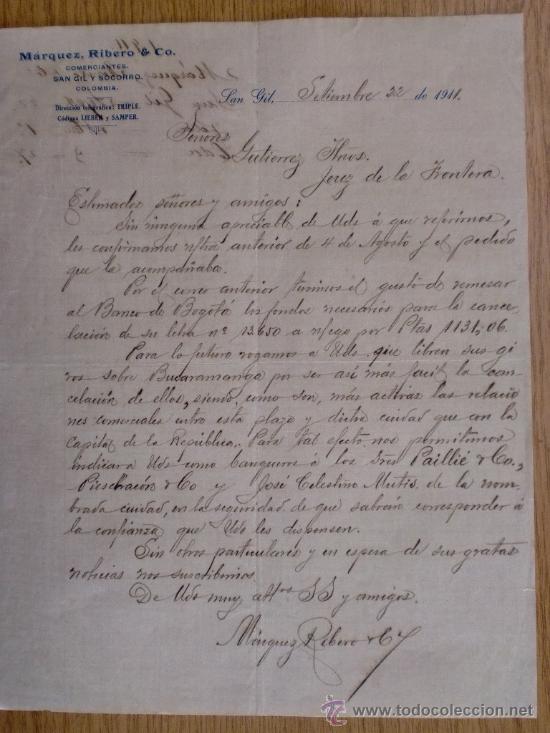 Márquez, Ribero & Co.
COMERCIANTES.
SAN GIL Y SOCORRO.
COLOMBIA.
Dirección telegráfica: TRIPLE.
Códigos LIEBER y SAMPER.
San Gil, Setiembre 22 de 1911.
Señores
Gutierrez Hnos.
Jerez de la Frontera.
Estimados señores y amigos:
Sin ninguna apreciable de Uds á que referirnos,
les confirmamos nstra anterior de 4 de Agosto y el pedido
que la acompañaba.
Por el correo anterior tuvimos el gusto de remesar
al Banco de Bogotá los fondos necesarios para la cance-
lación de su letra nº 13650 a n/cgo por Ptas 1131,06.
Para lo futuro rogamos a Uds. que libren sus gi
ros sobre Bucaramanga por ser así más facil la can-
celación de ellos, siendo, como son, más activas las relacio
nes comerciales entre esta plaza y dicha ciudad que con la
Capital de la República. Para tal efecto nos permitimos
indicar a Uds como banqueros á los Sres Paillié & Co.,
& Co y José Celestino Mutis, de la nom-
brada ciudad, en la seguridad de que sabrán corresponder á
la confianza que Uds les dispensen.
Sin otros particulares y en espera de sus gratas
noticias nos suscribimos.
De Uds muy attos SS y amigos.
Márquez Ribero & Co
www.todocoleccion.net